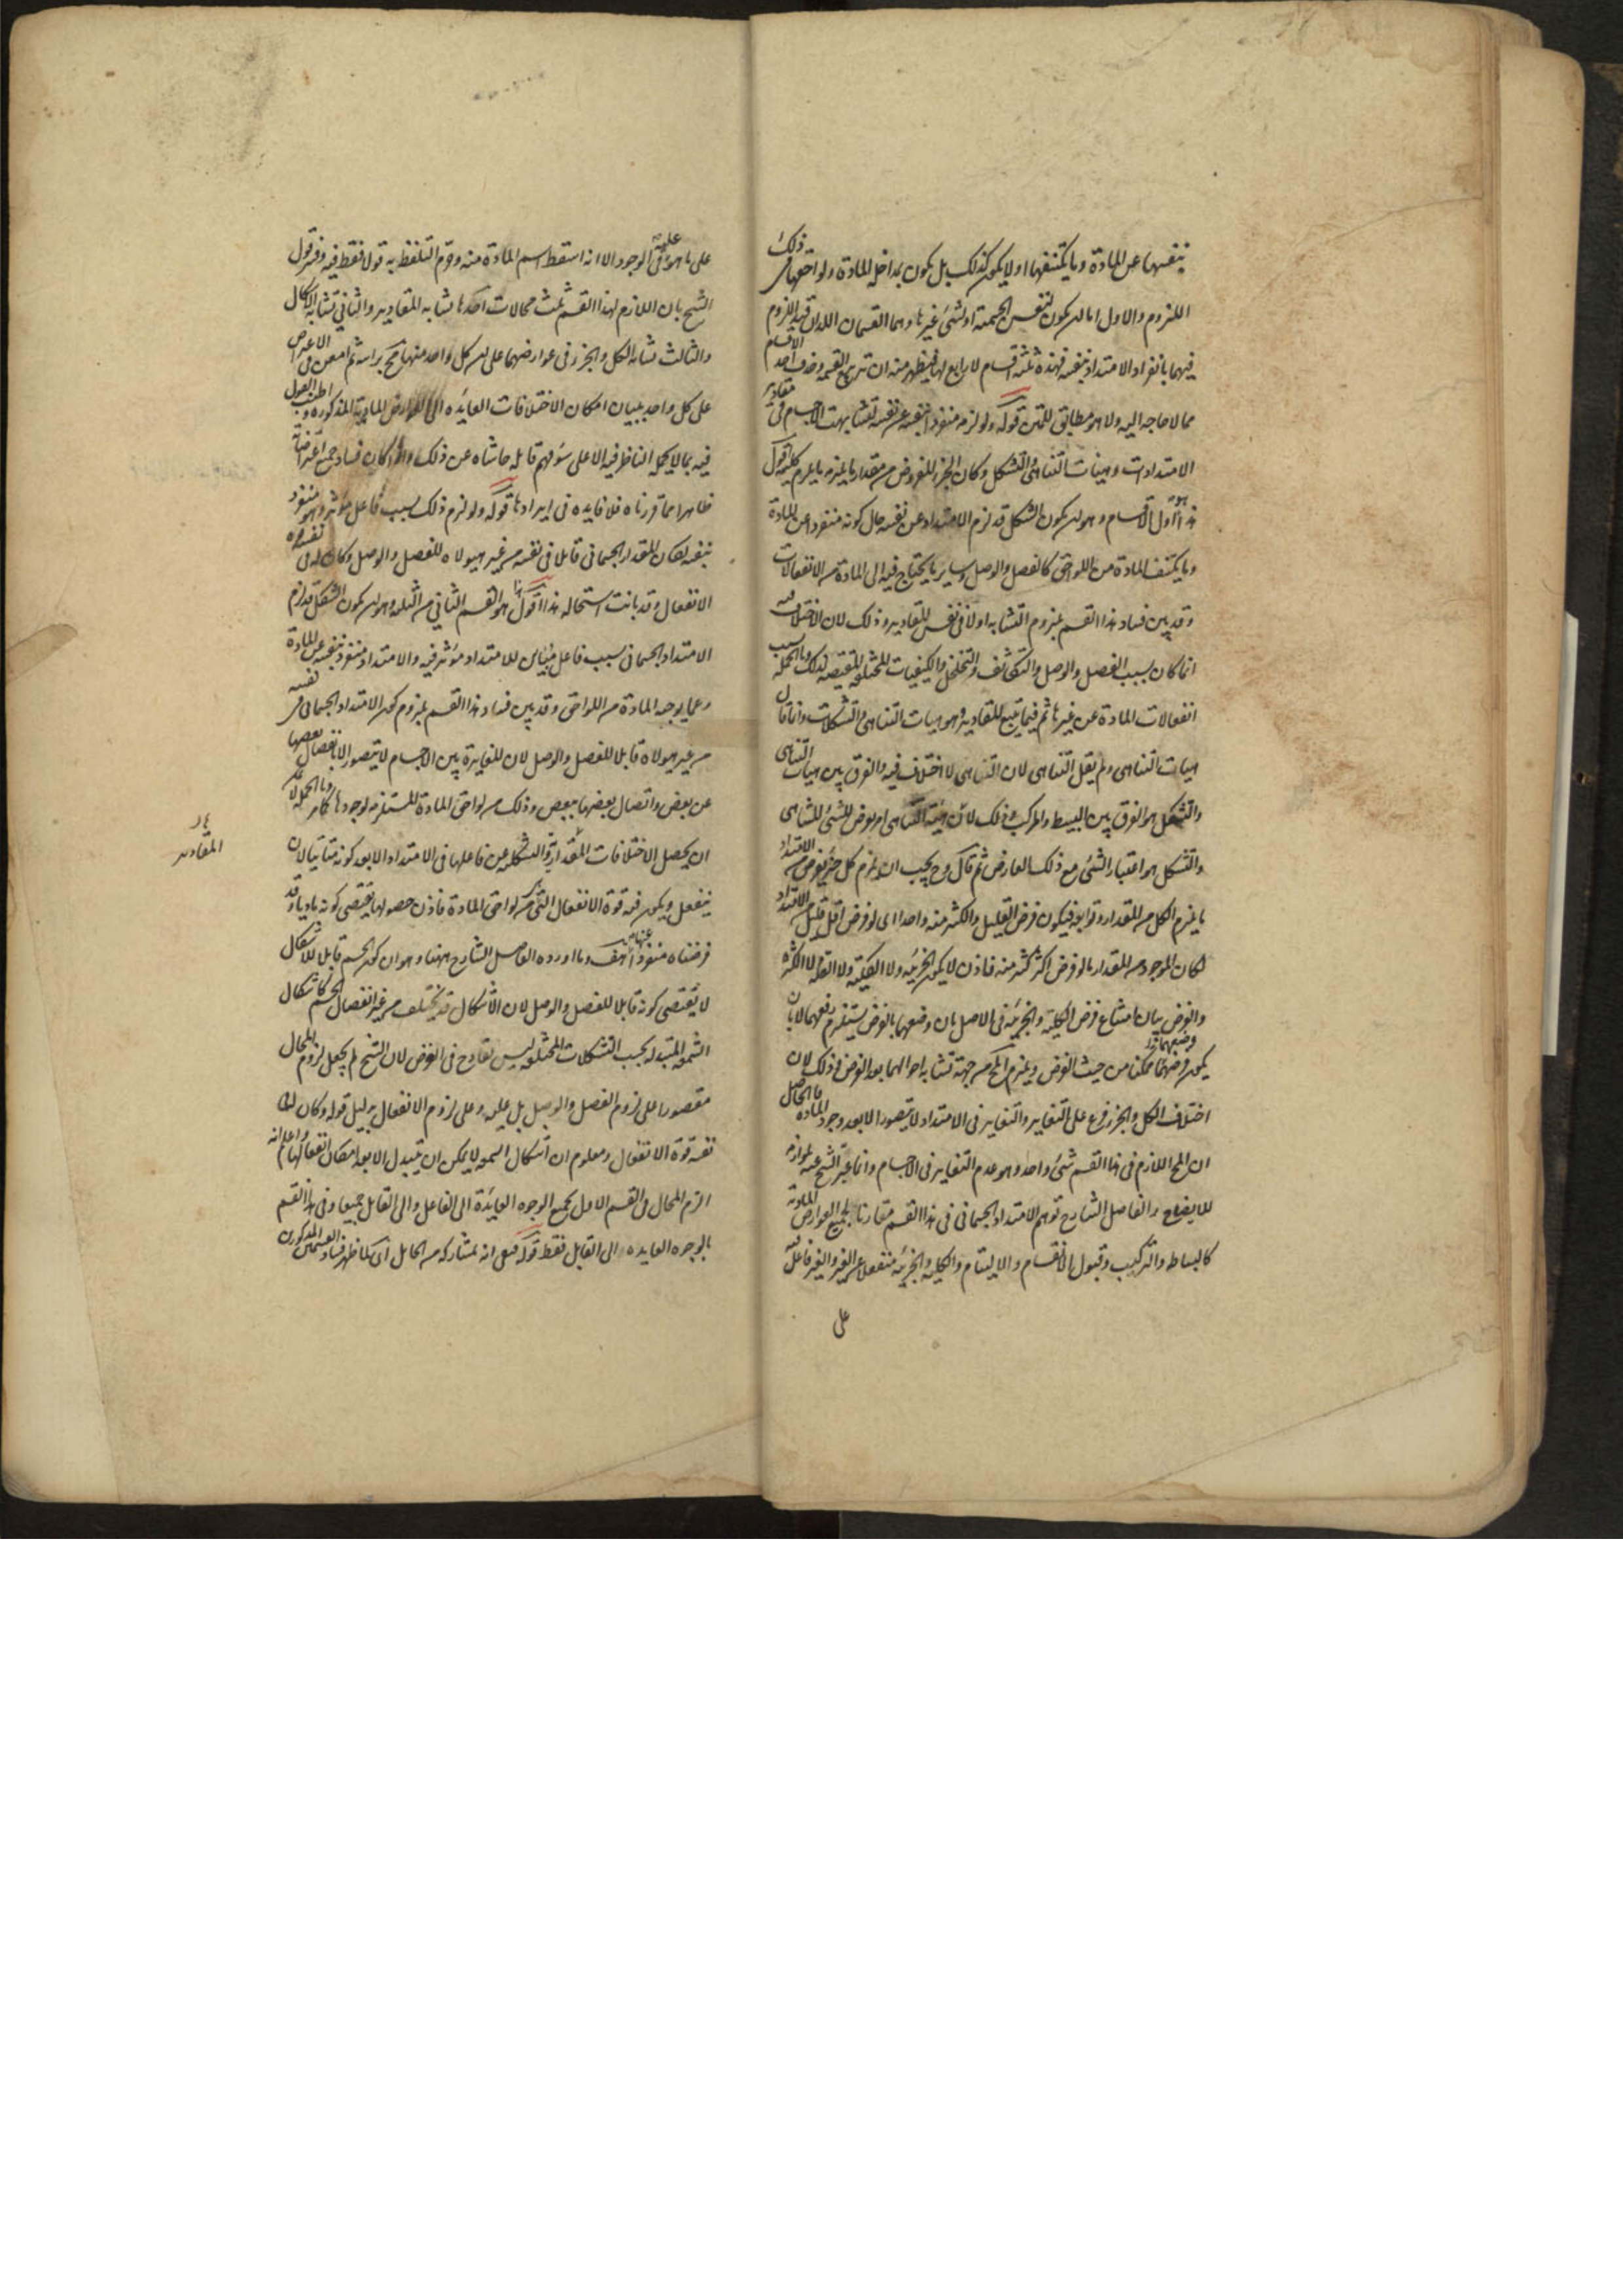 بنفسها عن المادة وما يكتنفها او لا يكون كذلك بل يكون بمداخلة المادة ولواحقها في ذلك
اللزوم والاول اما ان يكون لنفس الجسمية او لشئ غيرها وهما القسمان اللذان قيد اللزوم
فيهما بانفراد الامتداد بنفسه فهذه ثلثة اقسام لا رابع لها فيظهر منه ان تربيع القسمة وحذف احد الاقسام
مما لا حاجة اليه ولا هو مطابق للمتن قوله ولو لزمه منفردا بنفسه عن نفسه لتشابهت الاجسام في مقادير
الامتدادات وهيئات التناهى والتشكل وكان الجزء المفروض من مقدار ما يلزمه ما يلزم كليته اقول
هذا هو اول الاقسام وهو ان يكون الشكل قد لزم الامتداد عن نفسه حال كونه منفردا عن المادة
وما يكتنف المادة من اللواحق كالفصل والوصل وساير ما يحتاج فيه الى المادة من الانفعالات
وقد بين فساد هذا القسم بلزوم التشابه اولا في نفس المقادير وذلك لان الاختلاف
انما كان بسبب الفصل والوصل والتكاثف والتخلخل والكيفيات المختلفة المقتضية لذلك وبالجملة بسبب
انفعالات المادة عن غيرها ثم فيما يتبع المقادير وهو هيات التناهى والتشكلات وانما قال
هيات التناهى ولم يقل التناهى لان التناهى لا اختلاف فيه والفرق بين هيات التناهى
والتشكل هو الفرق بين البسيط والمركب وذلك لان هيئة التناهى امر يعرض للشئ المتناهى
والتشكل هو اعتبار الشئ مع ذلك العارض ثم قال وح يجب ان يلزم كل جزء يفرض من الامتداد
ما يلزم الكل من المقدار وتوابعه فيكون فرض القليل والكثير منه واحدا اى لو فرض اقل قليل من الامتداد
لكان الموجود من المقدار ما لو فرض اكثر كثير منه فاذن لا يكون الجزئية ولا الكلية ولا القلة ولا الكثرة
والغرض بيان امتناع فرض الكلية والجزئية في الاصل بان وضعهما بالفرض يستلزم رفعهما لا بان
يكون وضعهما وفرضهما ممكنا من حيث الفرض ويلزم المح من جهة تشابه احوالهما بعد الفرض وذلك لان
اختلاف الكل والجزء فرع على التغاير والتغاير في الامتداد لا يتصور الا بعد وجود المادة فالحاصل
ان المح اللازم في هذا القسم شئ واحد وهو عدم التغاير في الاجسام وانما عبر الشيخ عنه بلوازمه
للايضاح والفاضل الشارح توهم الامتداد الجسماني في هذا القسم مقارنا لجميع العوارض المادية
كالبساطة والتركيب وقبول الانقسام والالتيام والكلية والجزئية منفعلا عن الغير والغير فاعل فيه
على
على ما هو عليه في الوجود الا انه اسقط اسم المادة منه وقوم التلفظ به قولا فقط فيه وفسر قول
الشيخ بان اللازم لهذا القسم ثلث محالات احدها تشابه المقادير والثاني تشابه الاشكال
والثالث تشابه الكل والجزء في عوارضهما على ان كل واحد منها مح براسه ثم امعن في الاعتراض
على كل واحد ببيان امكان الاختلافات العائدة الى العوارض المادية المذكورة واطنب القول
فيه بما لا يحمل الناظر فيه الا على سوء فهم قائله حاشاه عن ذلك واذا كان فساد جميع اعتراضاته
ظاهرا مما قررناه فلا فايدة في ايرادها قوله ولو لزم ذلك بسبب فاعل مؤثر وهو منفرد
بنفسه لكان المقدار الجسماني قابلا في نفسه من غير هيولاه للفصل والوصل وكان له في نفسه قوة
الانفعال وقد بانت استحالة هذا اقول هذا هو القسم الثاني من الثلثة وهو ان يكون الشكل قد لزم
الامتداد الجسماني بسبب فاعل مباين للامتداد مؤثر فيه والامتداد منفرد بنفسه عن المادة
وعما يوجبه المادة من اللواحق وقد بين فساد هذا القسم بلزوم كون الامتداد الجسماني في نفسه
من غير هيولاه قابلا للفصل والوصل لان المغايرة بين الاجسام لا يتصور الا بانفصال بعضها
عن بعض واتصال بعضها ببعض وذلك من لواحق المادة المستلزمة لوجودها كما مر وبالجملة لا يمكن
ان يحصل الاختلافات المقدارية والشكلية عن فاعلها في الامتداد الا بعد كونه متاتيا لان
ينفعل ويكون فيه قوة الانفعال التي هي من لواحق المادة فاذن حصولها يقتضى كونه ماديا وقد
فرضناه منفردا عنها هف وما اورده الفاضل الشارح ههنا وهو ان كون الجسم قابلا للاشكال
لا يقتضى كونه قابلا للفصل والوصل لان الاشكال قد يختلف من غير انفصال الجسم كاشكال
الشمعة المتبدلة بحسب التشكلات المختلفة ليس بقادح في الغرض لان الشيخ لم يجعل لزوم المحال
مقصورا على لزوم الفصل والوصل بل عليه وعلى لزوم الانفعال بدليل قوله وكان له في
نفسه قوة الانفعال ومعلوم ان اشكال الشمعة لا يمكن ان يتبدل الا بعد امكان انفعالها واعلم انه
الزم المحال في القسم الاول بجميع الوجوه العائدة الى الفاعل والى القابل جميعا وفي هذا القسم
بالوجوه العايدة الى القابل فقط قوله فبقى انه بمشاركة من الحامل اى لما ظهر فساد القسمين المذكورين
المقادير